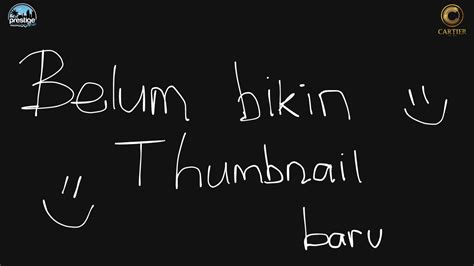 prestige
CARTIER
Belum bikin
Thumbnail
baru